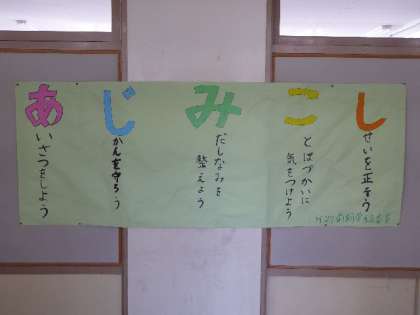 あいさつをしよう
じかんを守ろう
みだしなみを
整えよう
ことばづかいに
気をつけよう
しせいを正そう